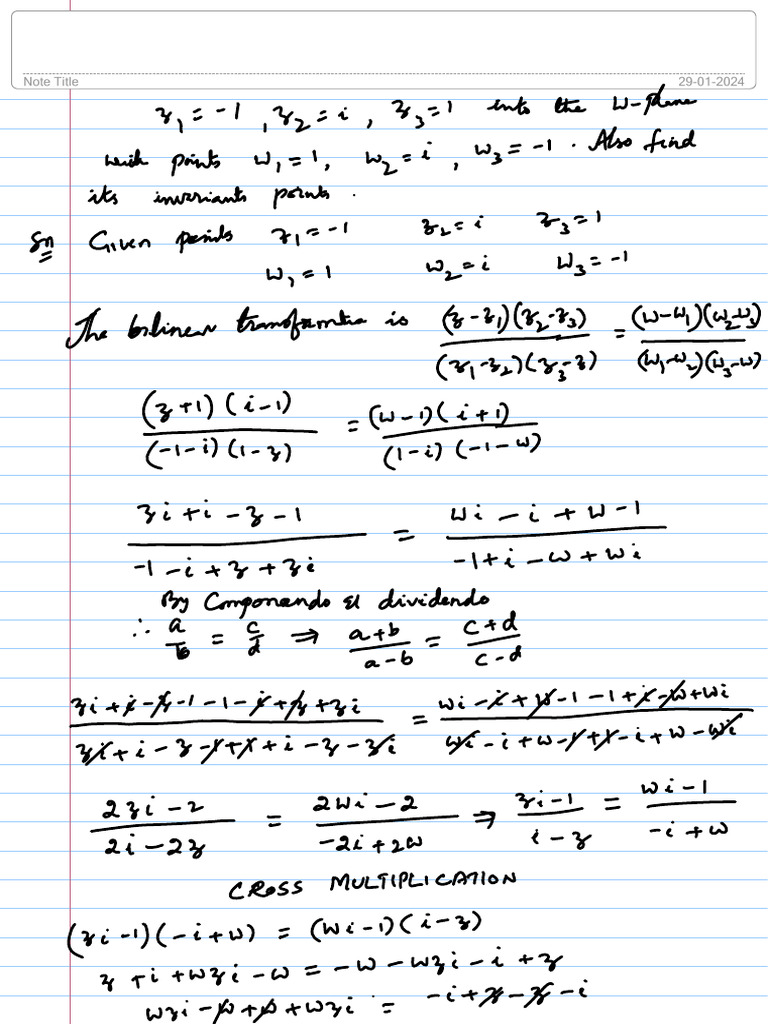 Note Title
29-01-2024
z₁ = -1 , z₂ = i , z₃ = 1 into the W-plane
with points w₁ = 1, w₂ = i , w₃ = -1 . Also find
its invariants points .
Sn Given points z₁ = -1 z₂ = i z₃ = 1
w₁ = 1 w₂ = i w₃ = -1
The bilinear transformtia is (z-z₁)(z₂-z₃)/(z₁-z₂)(z₃-z) = (w-w₁)(w₂-w₃)/(w₁-w₂)(w₃-w)
(z+1)(i-1)/(-1-i)(1-z) = (w-1)(i+1)/(1-i)(-1-w)
zi+i-z-1/-1-i+z+zi = wi-i+w-1/-1+i-w+wi
By Componendo & dividendo
∴ a/b = c/d ⇒ a+b/a-b = c+d/c-d
zi+i-z-1-1-i+z+zi/zi+i-z-1+1+i-z-zi = wi-i+w-1-1+i-w+wi/wi-i+w-1+1-i+w-wi
2zi-2/2i-2z = 2wi-2/-2i+2w ⇒ zi-1/i-z = wi-1/-i+w
CROSS MULTIPLICATION
(zi-1)(-i+w) = (wi-1)(i-z)
z+i+wzi-w = -w-wzi-i+z
wzi-w+w+wzi = -i+z-z-i